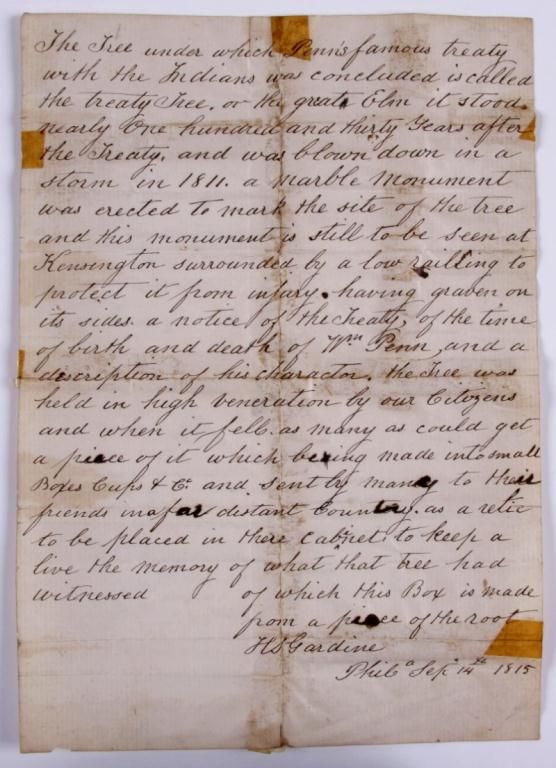 The Tree under which Penn's famous treaty
with the Indians was concluded is called
the treaty Tree. or the great Elm it stood
nearly One hundred and thirty Years after
the Treaty. and was blown down in a
storm in 1811. a marble Monument
was erected to mark the site of the tree
and this monument is still to be seen at
Kensington surrounded by a low railling to
protect it from injury. having graven on
its sides. a notice of the Treaty, of the time
of birth and death of Wm Penn, and a
discription of his charactor. the Tree was
held in high veneration by our Citizens
and when it fell. as many as could get
a piece of it which being made into small
Boxes Cups & Co. and sent by many to their
friends in a far distant Country. as a relic
to be placed in there cabinet. to keep a
live the memory of what that tree had
witnessed of which this Box is made
from a piece of the root
HS Gardine
Phila Sep 14th 1815